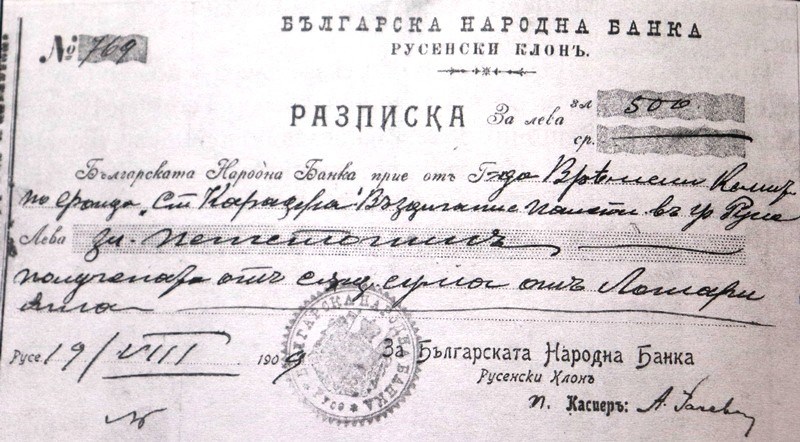 БЪЛГАРСКА НАРОДНА БАНКА
РУСЕНСКИ КЛОНЪ.
№ 769
РАЗПИСКА За лева зл. 500
ср.
Българската Народна Банка прие отъ Г-да Врѣмени Комит.
по фонда „Ст. Караджа" Въздигание памет. в гр. Русе
Лева зл. петстотинъ
получената от сущ. сума отъ Лотари
ята
Русе 19/VIII 1909
За Българската Народна Банка
Русенски Клонъ
п. Касиеръ: А.
БЪЛГАРСКА НАРОДНА БАНКА
РУСЕ